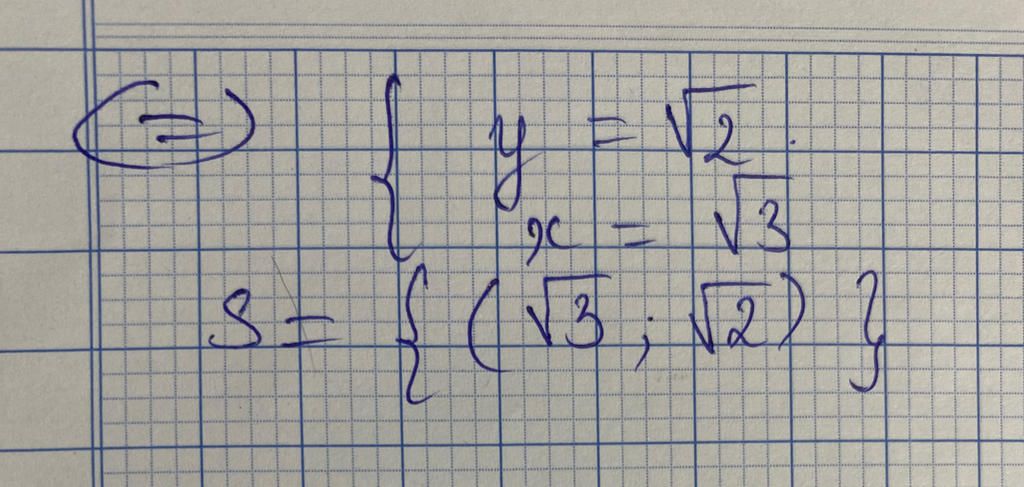 (=) { y = √2.
x = √3
S = { (√3 ; √2) }